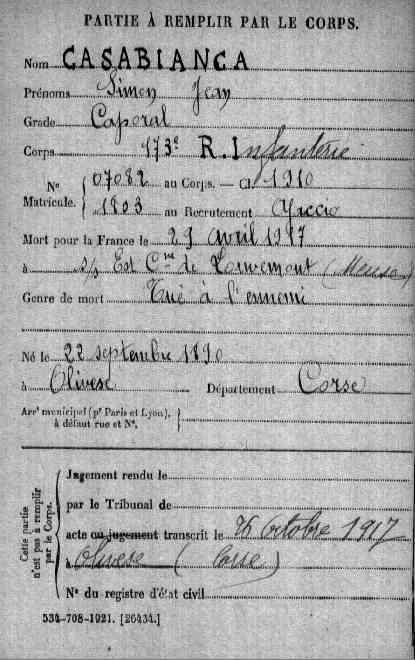 PARTIE À REMPLIR PAR LE CORPS.
Nom CASABIANCA
Prénoms Simon Jean
Grade Caporal
Corps 173e R. Infanterie
No Matricule. { 07082 au Corps. — Cl. 1910
1803 au Recrutement Ajaccio
Mort pour la France le 29 avril 1917
à s/s Est Cne de Louvemont (Meuse)
Genre de mort Tué à l'ennemi
Né le 22 septembre 1890
à Olivese Département Corse
Arrt municipal (pr Paris et Lyon), à défaut rue et No. }
Cette partie n'est pas à remplir par le Corps. {
Jugement rendu le
par le Tribunal de
acte ou jugement transcrit le 26 octobre 1917
à Olivese (Corse)
No du registre d'état civil
534-708-1921. [26434.]